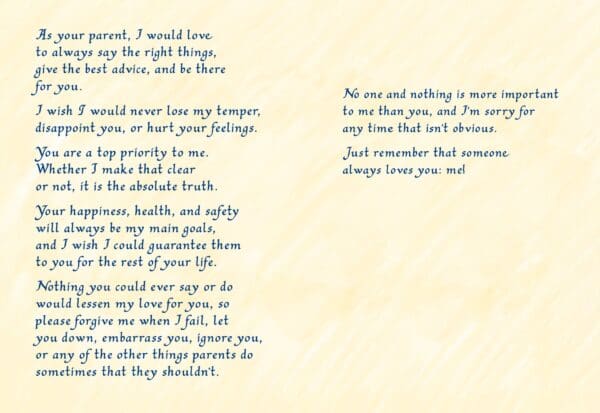 As your parent, I would love
to always say the right things,
give the best advice, and be there
for you.
I wish I would never lose my temper,
disappoint you, or hurt your feelings.
You are a top priority to me.
Whether I make that clear
or not, it is the absolute truth.
Your happiness, health, and safety
will always be my main goals,
and I wish I could guarantee them
to you for the rest of your life.
Nothing you could ever say or do
would lessen my love for you, so
please forgive me when I fail, let
you down, embarrass you, ignore you,
or any of the other things parents do
sometimes that they shouldn't.
No one and nothing is more important
to me than you, and I'm sorry for
any time that isn't obvious.
Just remember that someone
always loves you: me!